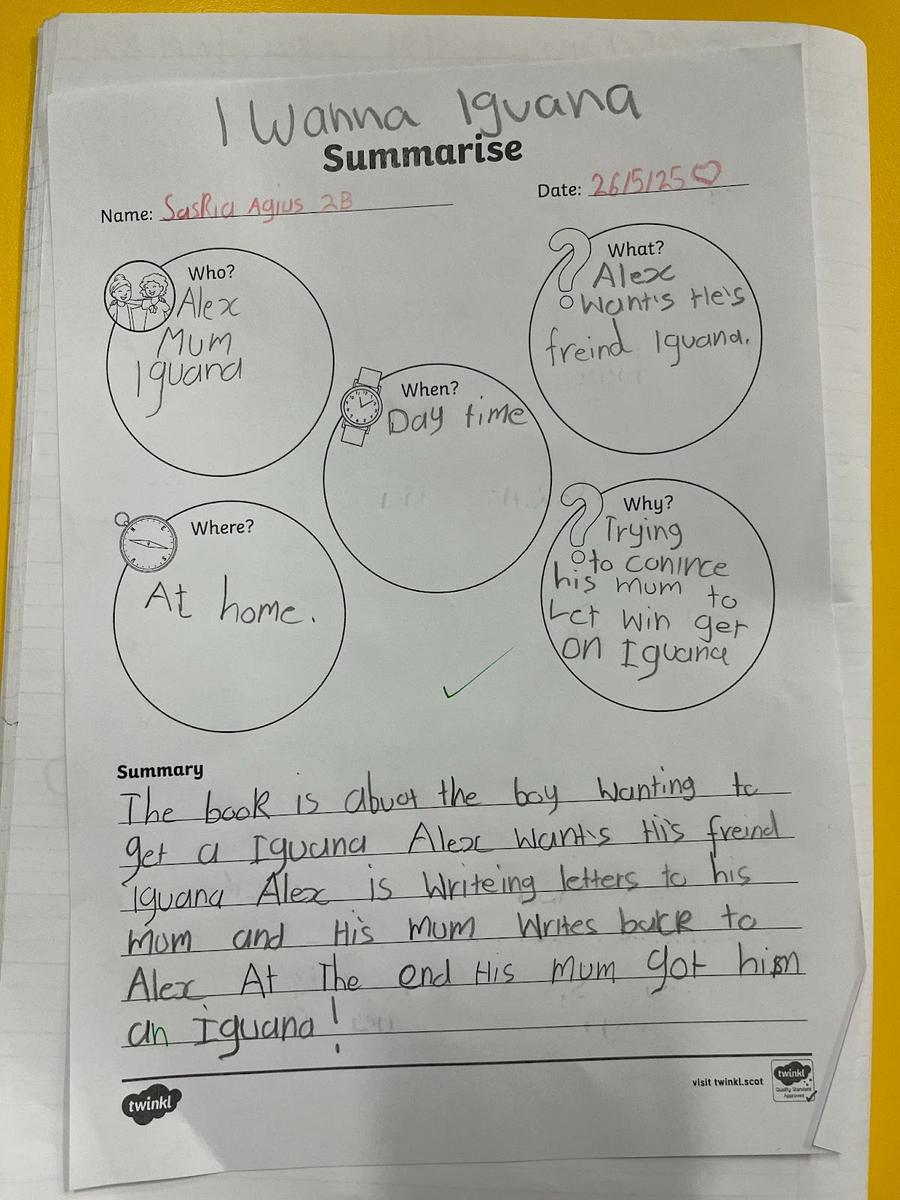 I Wanna Iguana
Summarise
Name: Saskia Agius 2B
Date: 26/5/25
Who?
Alex
Mum
Iguana
What?
Alex
Want's He's
freind Iguana.
When?
Day time
Where?
At home.
Why?
Trying
to conince
his mum to
Let win get
on Iguana
Summary
The book is abuot the boy wanting to
get a Iguana Alex want's His freind
Iguana Alex is Writeing letters to his
mum and His Mum Writes back to
Alex At The end His Mum got him
an Iguana!
twinkl
visit twinkl.scot
twinkl
Quality Standard
Approved